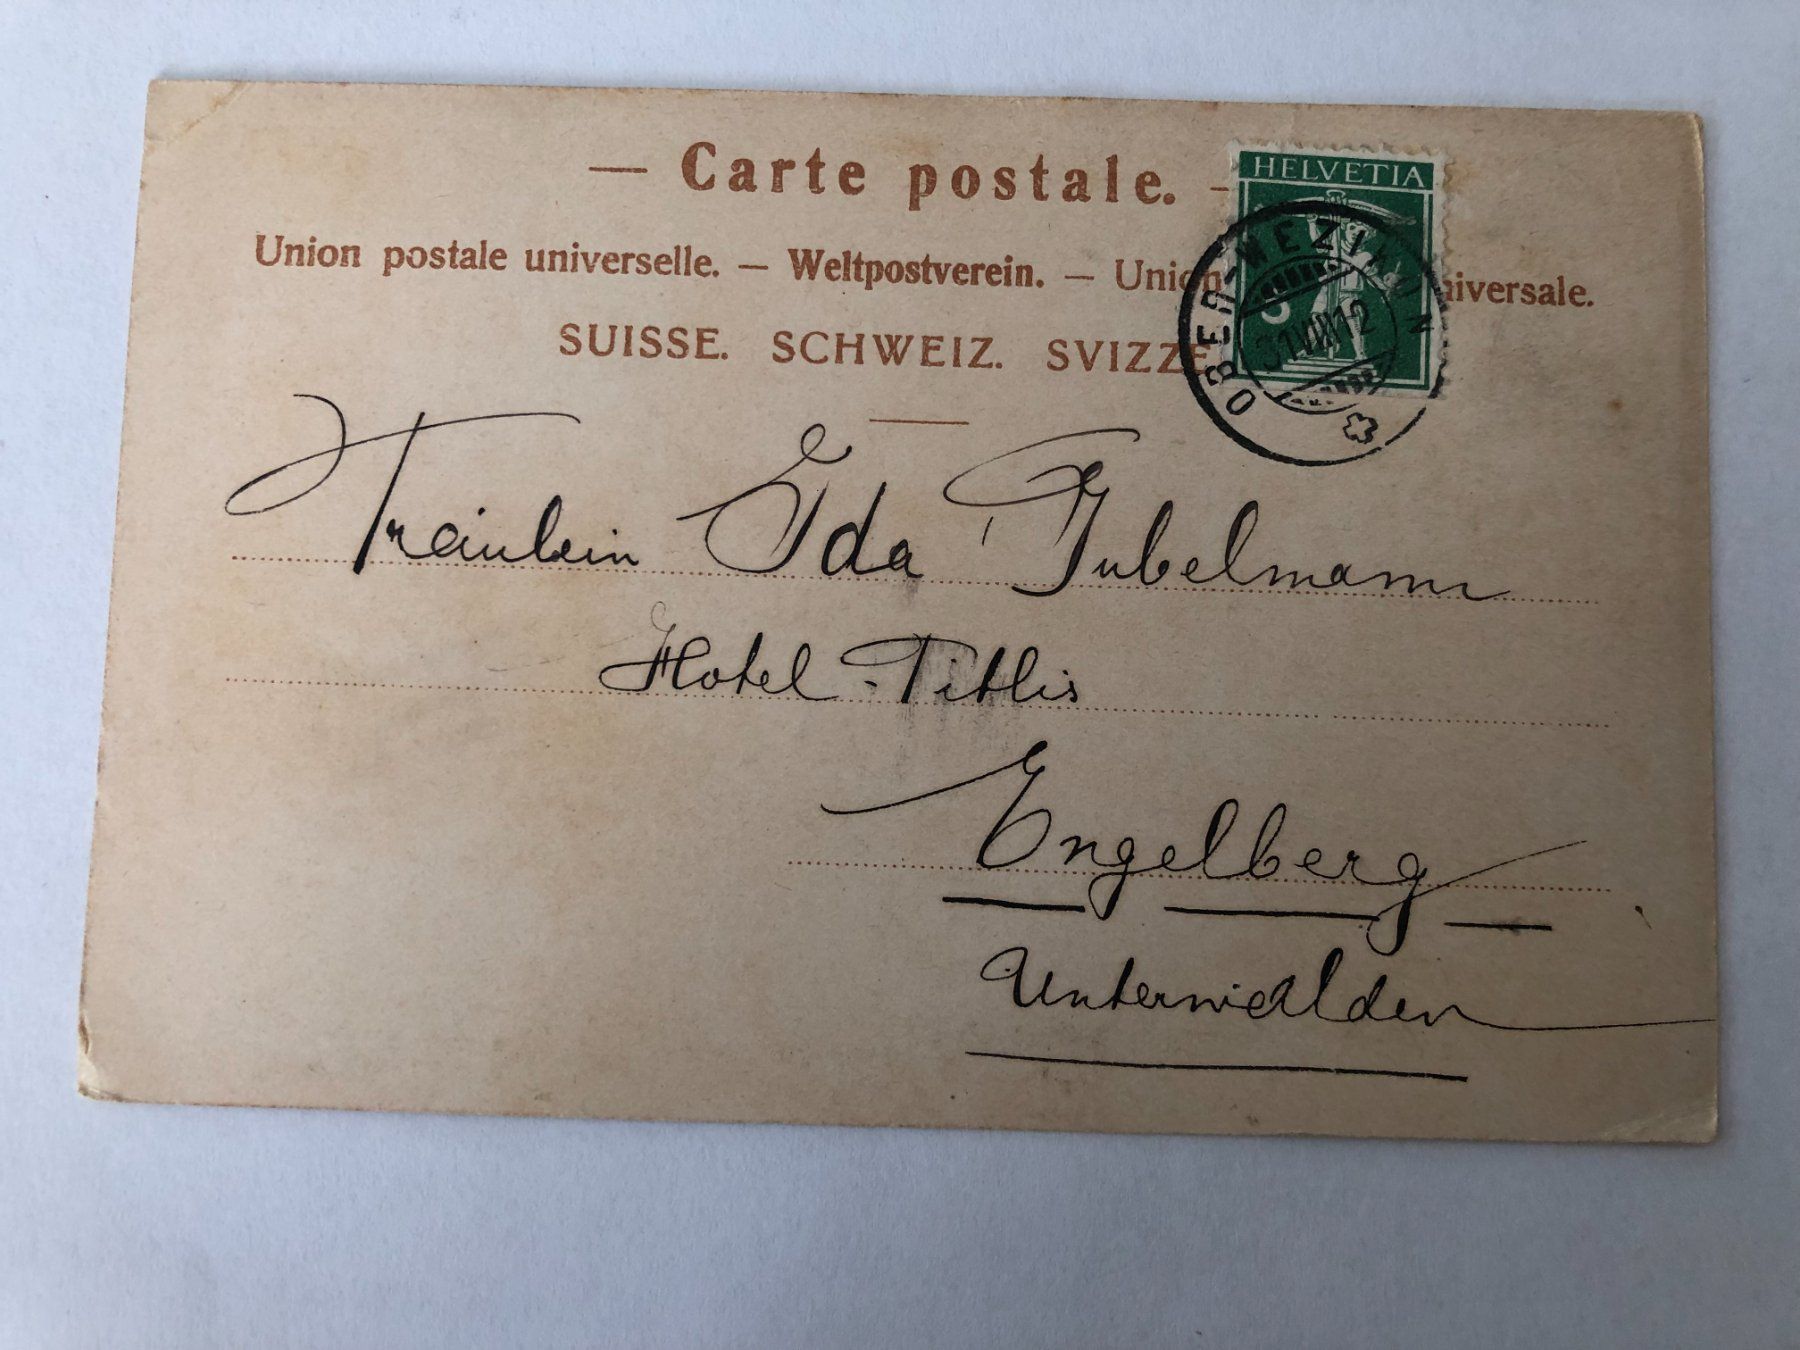 — Carte postale. —
HELVETIA
Union postale universelle. — Weltpostverein. — Union universale.
SUISSE. SCHWEIZ. SVIZZE
OBER-WEZIKON
31 VIII 12
Fräulein Ida Gubelmann
Hotel - Titlis
Engelberg
Unterwalden